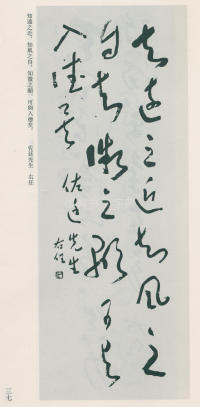 知遠之近知風之
自知微之顯可與
入德矣 佐廷先生
右任
知遠之近,知風之自,知微之顯,可與入德矣。
佐廷先生 右任
三七